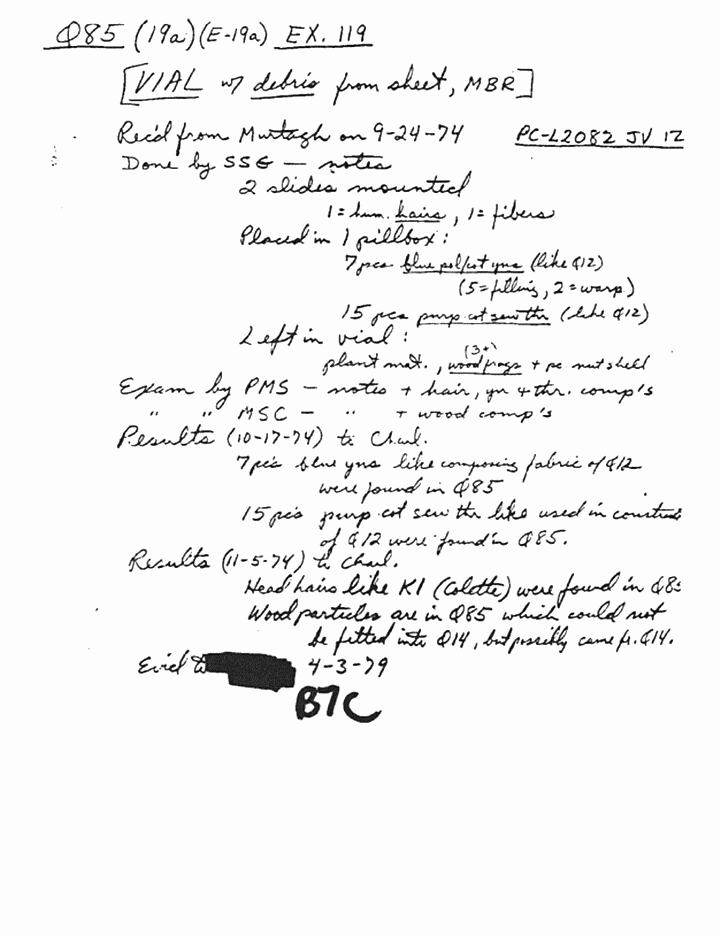 Q85 (19a)(E-19a) EX. 119
[VIAL w/ debris from sheet, MBR]
Rec'd from Murtagh on 9-24-74 PC-L2082 JV 12
Done by SSG — notes
2 slides mounted
1 = hum. hairs, 1 = fibers
Placed in 1 pillbox:
7 pcs blue pol/cot yns (like Q12)
(5 = filling, 2 = warp)
15 pcs purp cot sew thr (like Q12)
Left in vial:
(3+)
plant mat., wood frags + pc nutshell
Exam by PMS — notes + hair, yn + thr. comp's
" " MSC — " + wood comp's
Results (10-17-74) to Charl.
7 pcs blue yns like composing fabric of Q12
were found in Q85
15 pcs purp cot sew thr like used in construc
of Q12 were found in Q85.
Results (11-5-74) to Charl.
Head hairs like K1 (Colette) were found in Q85
Wood particles are in Q85 which could not
be fitted into Q14, but possibly came fr. Q14.
Evid to 4-3-79
B7C